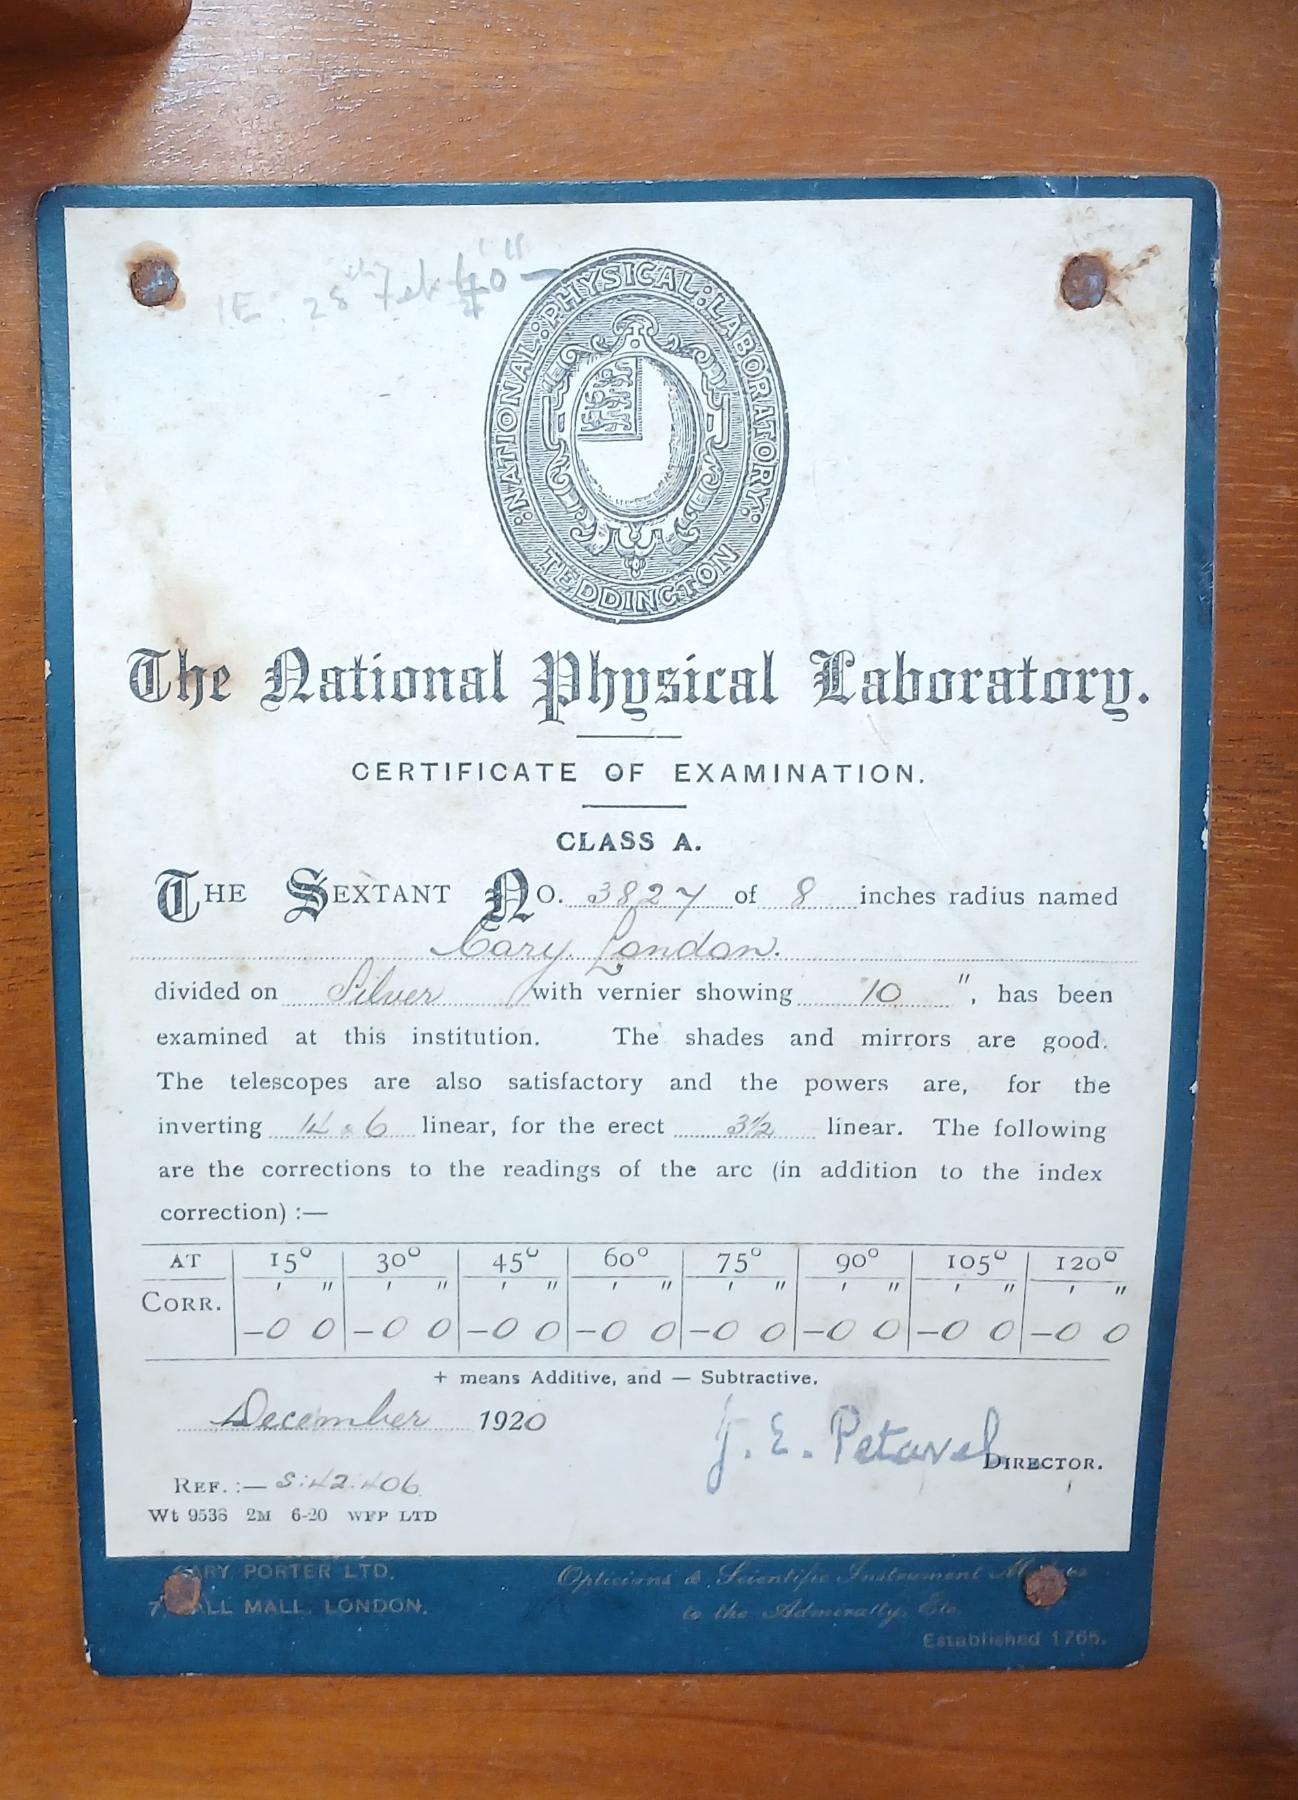 IE: 28 Feb
NATIONAL: PHYSICAL: LABORATORY:
TEDDINGTON
The National Physical Laboratory.
CERTIFICATE OF EXAMINATION.
CLASS A.
THE SEXTANT NO. 3827 of 8 inches radius named
Cary. London.
divided on Silver with vernier showing 10 ", has been
examined at this institution. The shades and mirrors are good.
The telescopes are also satisfactory and the powers are, for the
inverting 14 & 6 linear, for the erect 3½ linear. The following
are the corrections to the readings of the arc (in addition to the index
correction) :—
AT 15° 30° 45° 60° 75° 90° 105° 120°
' " ' " ' " ' " ' " ' " ' " ' "
CORR. –0 0 –0 0 –0 0 –0 0 –0 0 –0 0 –0 0 –0 0
+ means Additive, and — Subtractive.
December 1920
J. E. Petavel
DIRECTOR.
REF. :— S:42.406
Wt 9536 2M 6-20 WFP LTD
CARY PORTER LTD. Opticians & Scientific Instrument Makers
7, PALL MALL, LONDON. to the Admiralty, Etc.
Established 1765.